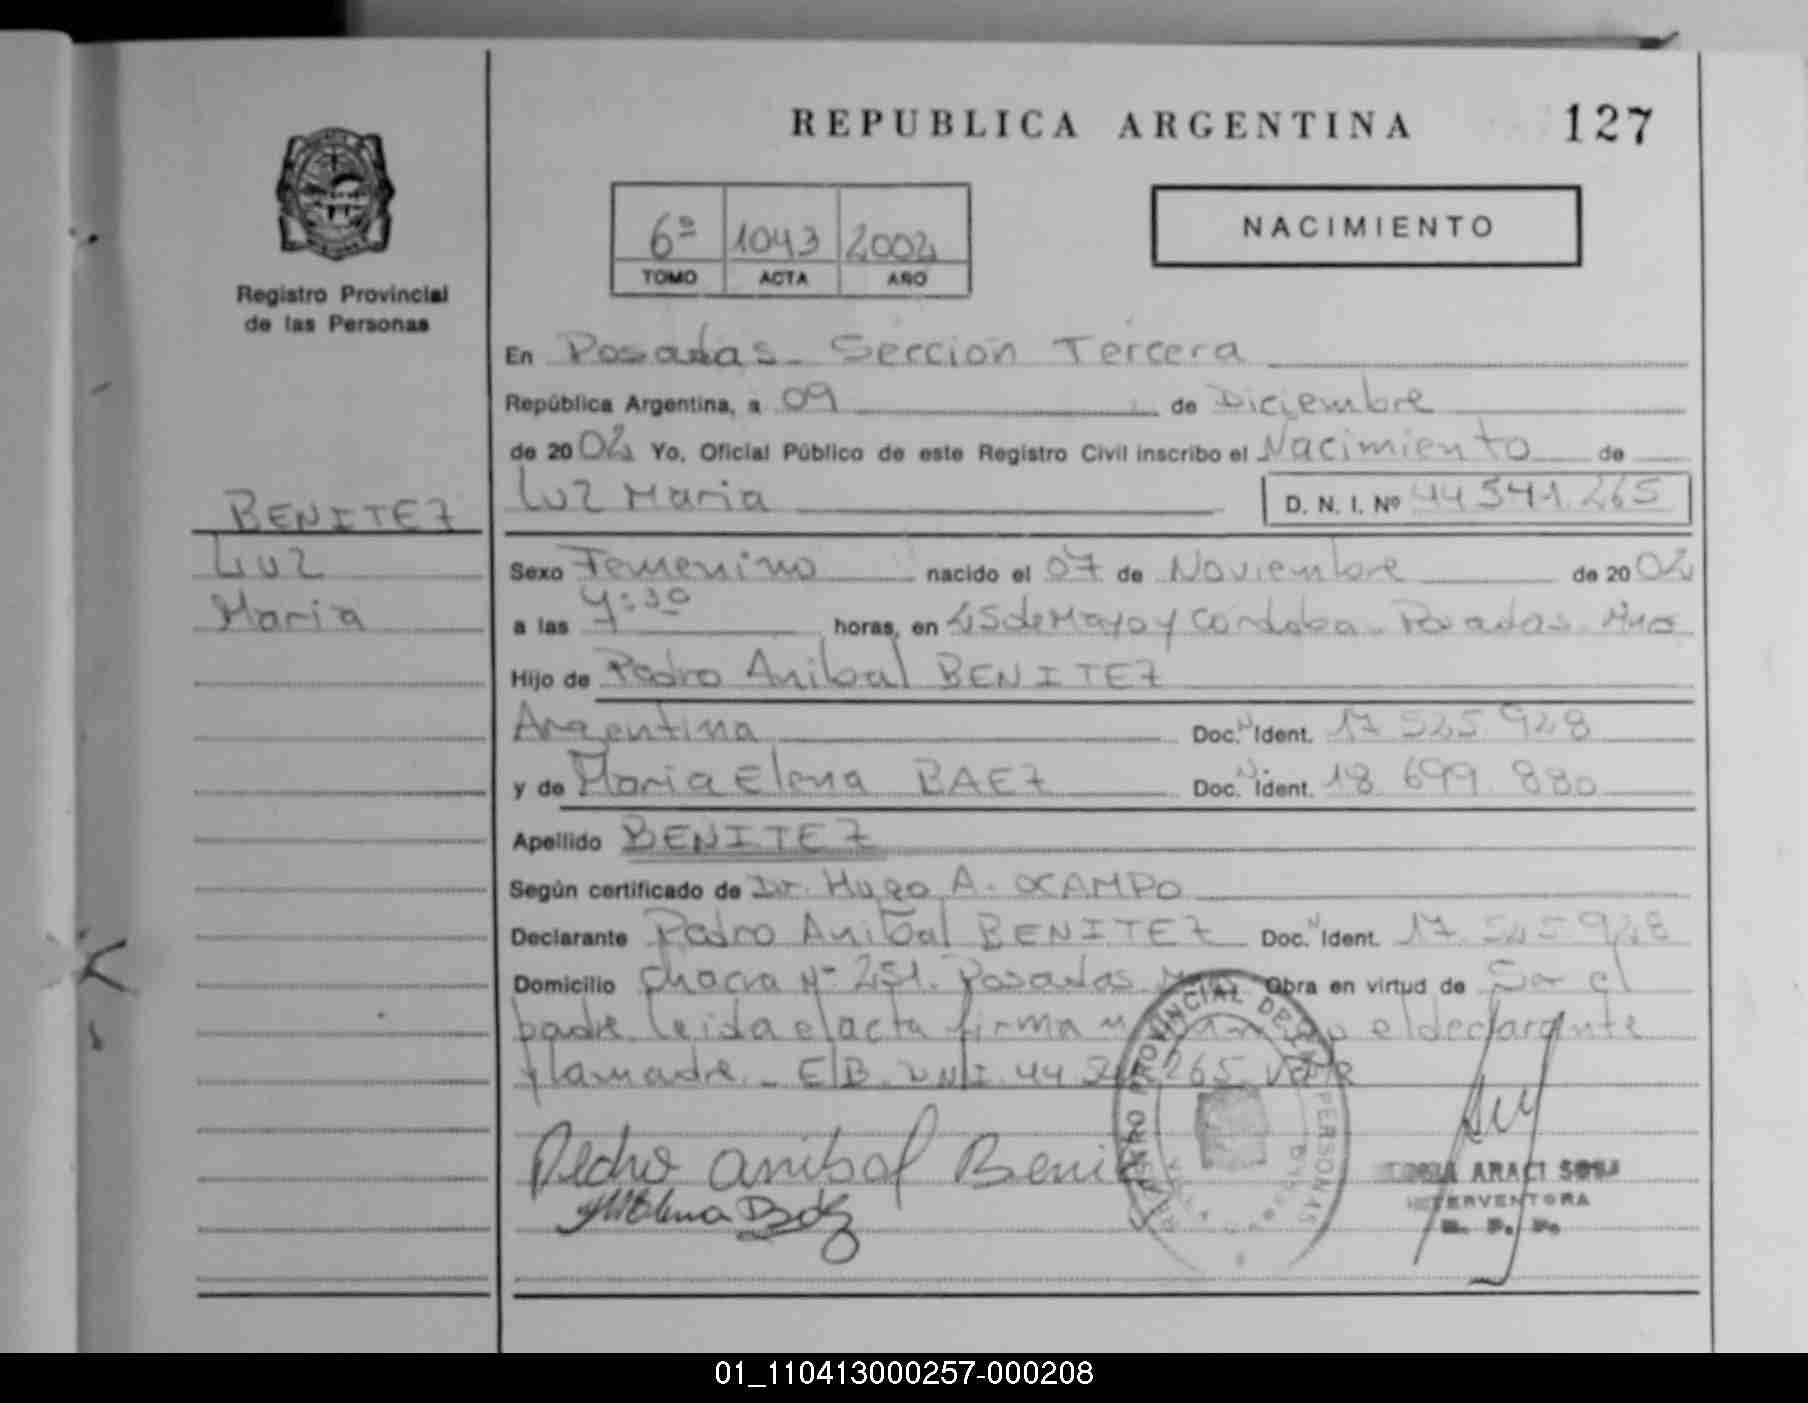 REPUBLICA ARGENTINA 127
6º 1043 2002
TOMO ACTA AÑO
NACIMIENTO
Registro Provincial
de las Personas
En Posadas - Sección Tercera
República Argentina, a 09 de Diciembre
de 2002 Yo, Oficial Público de este Registro Civil inscribo el Nacimiento de
BENITEZ
Luz Maria D. N. I. Nº 44 541.265
Luz
Maria
Sexo Femenino nacido el 07 de Noviembre de 2002
a las 4:30 horas, en 25 de Mayo y Cordoba - Posadas - Mnes
Hijo de Pedro Anibal BENITEZ
Argentina Doc. N Ident. 17 525 928
y de Maria Elena BAEZ Doc. N Ident. 18 699 880
Apellido BENITEZ
Según certificado de Dr. Hugo A. OCAMPO
Declarante Pedro Anibal BENITEZ Doc. N Ident. 17 525 928
Domicilio Chacra Nº 251. Posadas Obra en virtud de Ser el
padre leida el acta firma el declarante
y la madre - E/B. DNI. 44 265 Vale
Pedro anibal Beni
MElena Baez
REGISTRO PROVINCIAL DE LAS PERSONAS
ARACI SOSA
INTERVENTORA
R. P. P.
01_110413000257-000208